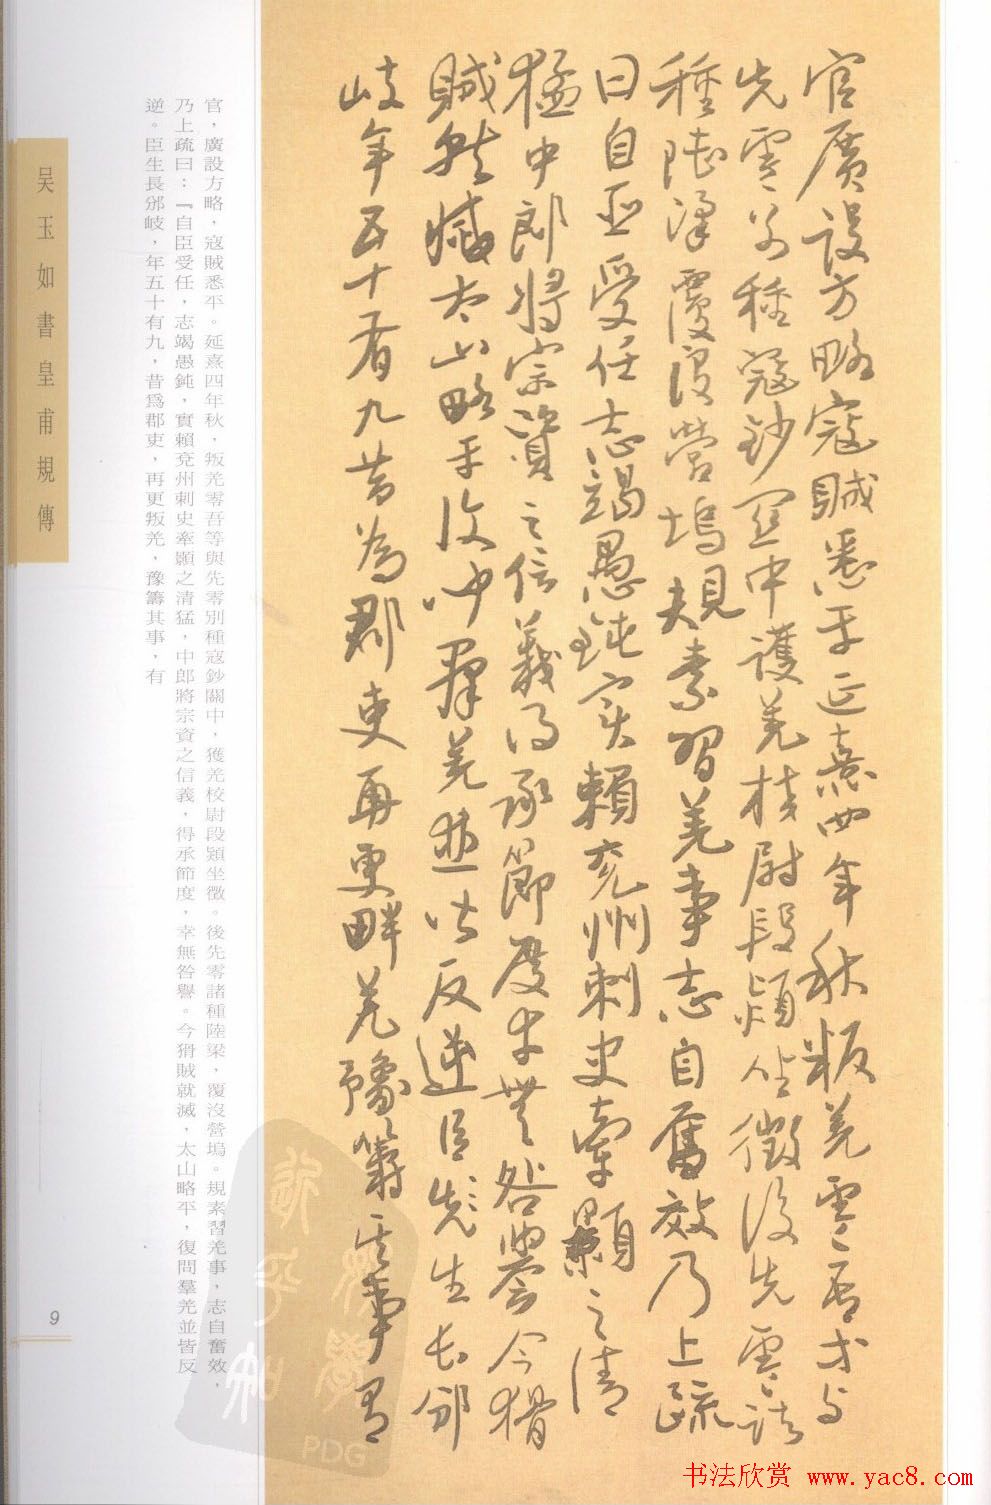 官廣設方略寇賊悉平延熹四年秋叛羌零吾等与
先零别種寇鈔関中護羌校尉段熲坐徵後先零諸
種陸梁覆沒營塢規素習羌事志自奮效乃上疏
曰自臣受任志竭愚鈍實賴兗州刺史牽顥之清
猛中郎將宗資之信義得承節度幸無咎譽今猾
賊就滅太山略平復聞羣羌並皆反逆臣先生長邠
岐年五十有九昔為郡吏再更叛羌豫籌其事有
官，廣設方略，寇賊悉平。延熹四年秋，叛羌零吾等與先零別種寇鈔關中，獲羌校尉段熲坐徵。後先零諸種陸梁，覆沒營塢。規素習羌事，志自奮效，
乃上疏曰：『自臣受任，志竭愚鈍，實賴兗州刺史牽顥之清猛，中郎將宗資之信義，得承節度，幸無咎譽。今猾賊就滅，太山略平，復問羣羌並皆反
逆。臣生長邠岐，年五十有九，昔爲郡吏，再更叛羌，豫籌其事，有
吴玉如書皇甫規傳
9
PDG
书法欣赏 www.yac8.com